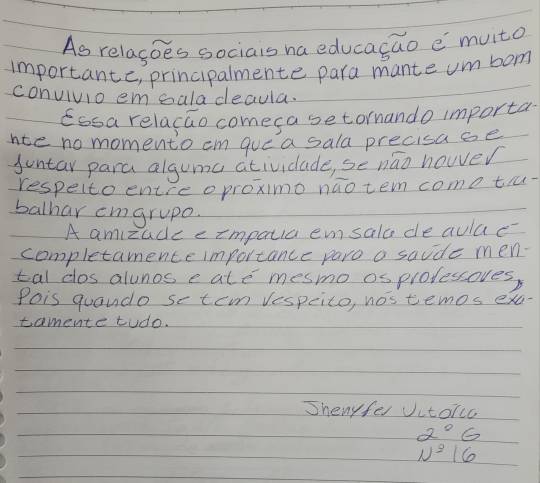 As relações sociais na educação é muito
importante, principalmente para mante um bom
convivio em sala de aula.
Essa relação começa se tornando importa-
nte no momento em que a sala precisa se
juntar para alguma atividade, se não houver
respeito entre o próximo não tem como tra-
balhar em grupo.
A amizade e empatia em sala de aula é
completamente importante para a saúde men-
tal dos alunos e até mesmo os professores,
Pois quando se tem respeito, nós temos exa-
tamente tudo.
Shenyfer Victória
2º G
Nº 16